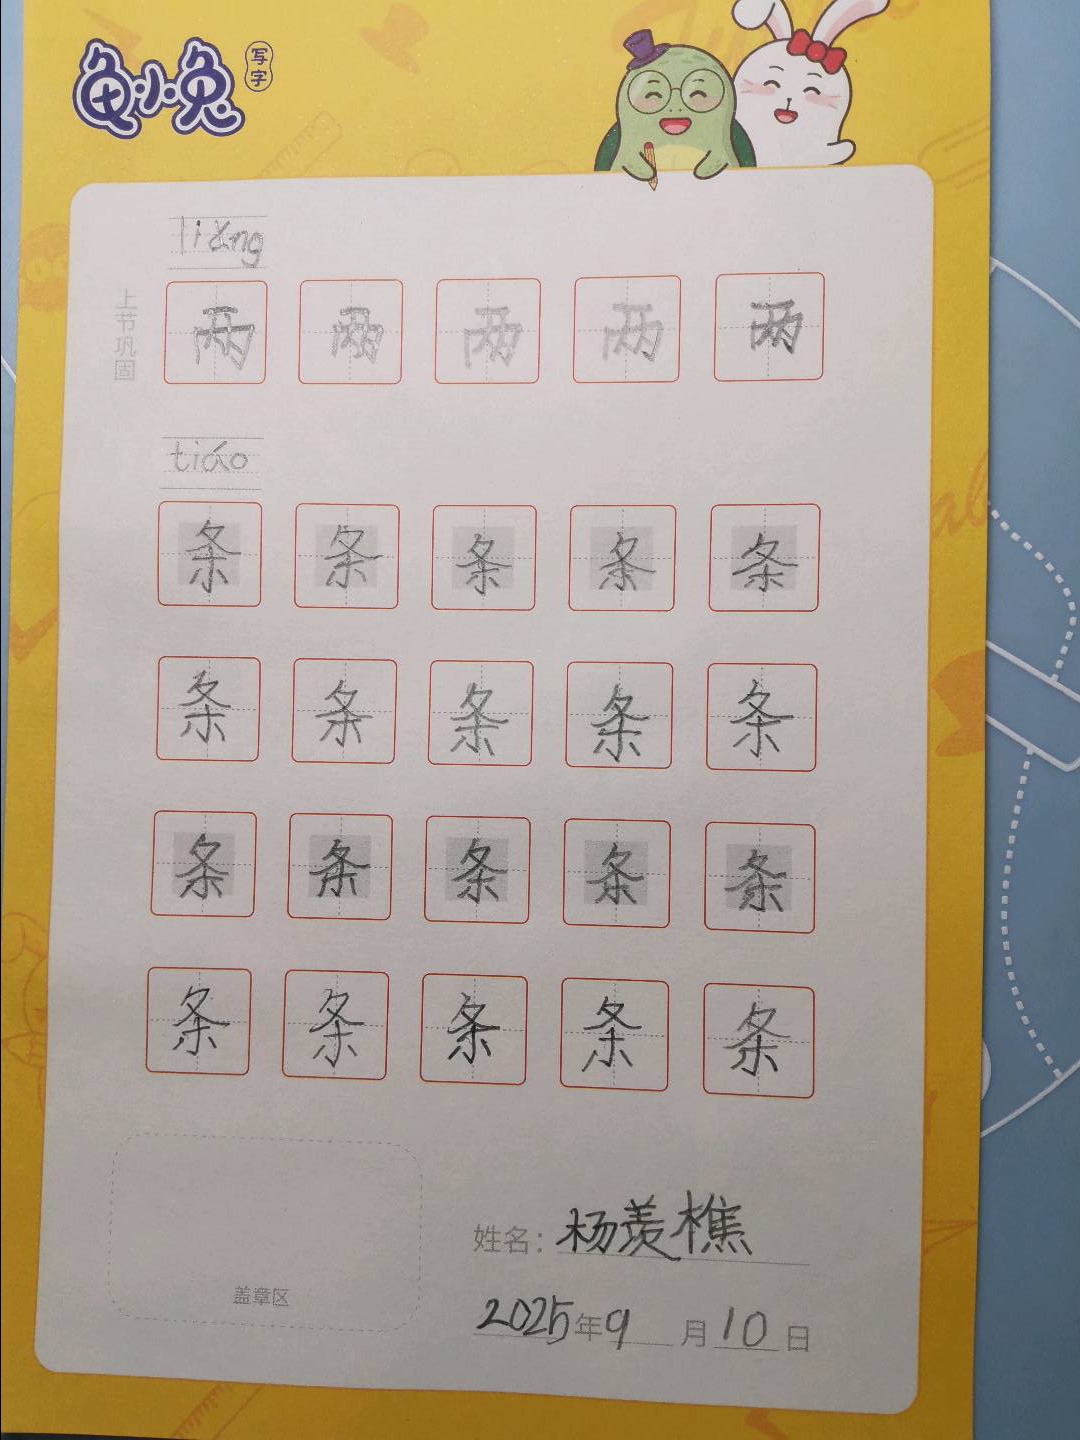 龟小兔
写字
liǎng
上节巩固
两 两 两 两 两
tiáo
条 条 条 条 条
条 条 条 条 条
条 条 条 条 条
条 条 条 条 条
姓名：杨羡樵
盖章区
2025年9月10日